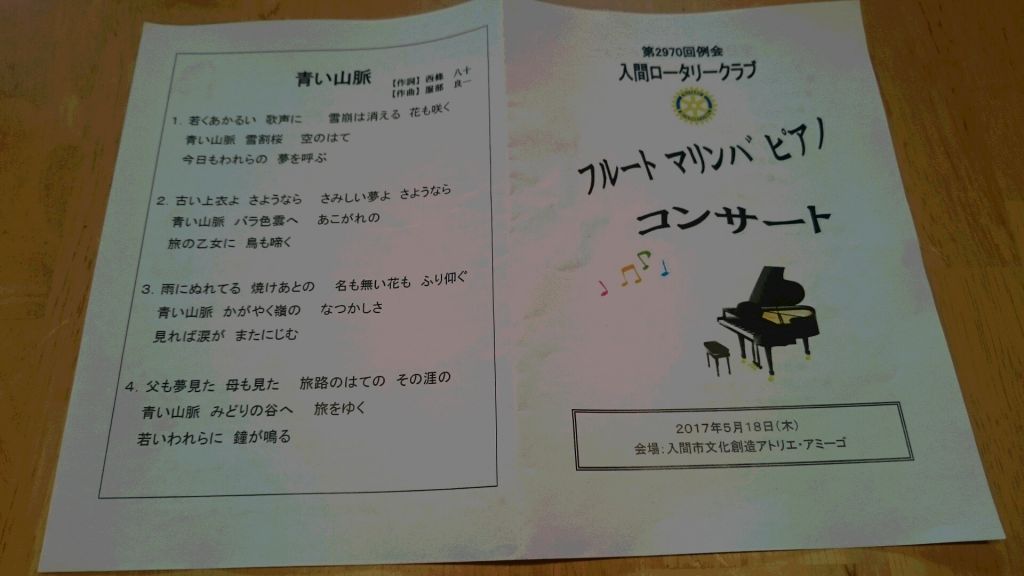 青い山脈
【作詞】西條 八十
【作曲】服部 良一
1. 若くあかるい 歌声に 雪崩は消える 花も咲く
青い山脈 雪割桜 空のはて
今日もわれらの 夢を呼ぶ
2. 古い上衣よ さようなら さみしい夢よ さようなら
青い山脈 バラ色雲へ あこがれの
旅の乙女に 鳥も啼く
3. 雨にぬれてる 焼けあとの 名も無い花も ふり仰ぐ
青い山脈 かがやく嶺の なつかしさ
見れば涙が またにじむ
4. 父も夢見た 母も見た 旅路のはての その涯の
青い山脈 みどりの谷へ 旅をゆく
若いわれらに 鐘が鳴る
第2970回例会
入間ロータリークラブ
フルート マリンバ ピアノ
コンサート
2017年5月18日(木)
会場:入間市文化創造アトリエ・アミーゴ